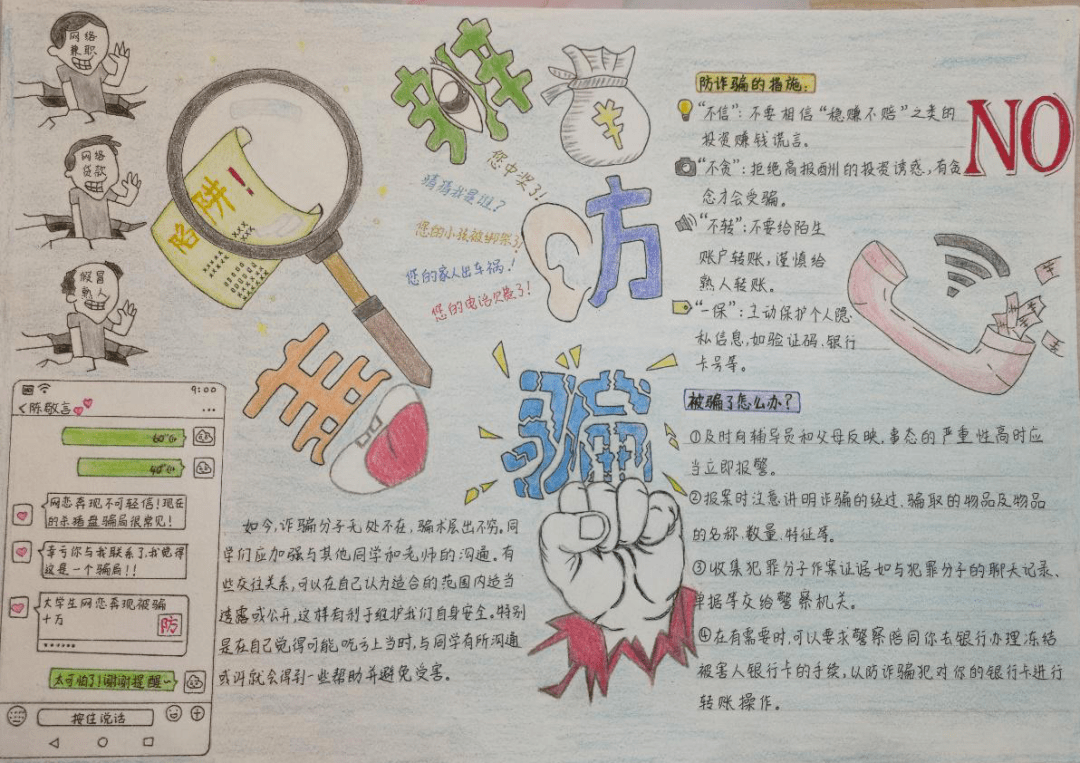 网络
兼职
网络
贷款
假冒
熟人
陷阱!!
辨
¥
您中奖了!
猜猜我是谁?
您的小孩被绑架了!
您的家人出车锅.!
您的电话欠费了!
方
害
骗
NO
9:00
<陈敬言
...
60"
40"
网恋奔现不可轻信!现在
的杀猪盘骗局很常见!
幸亏你与我联系了.我觉得
这是一个骗局!!
大学生网恋奔现被骗
十万
防
太可怕了!谢谢提醒~
按住说话
如今,诈骗分子无处不在,骗术层出不穷.同
学们应加强与其他同学和老师的沟通。有
些交往关系,可以在自己认为适合的范围内适当
透露或公开,这样有利于维护我们自身安全.特别
是在自己觉得可能吃亏上当时,与同学有所沟通
或许就会得到一些帮助并避免受害。
防诈骗的措施:
“不信”:不要相信“稳赚不赔”之类的
投资赚钱谎言。
“不贪”:拒绝高报酬州的投资诱惑,有贪
念才会受骗。
“不转”:不要给陌生
账户转账,谨慎给
熟人转账。
“一保”:主动保护个人隐
私信息,如验证码、银行
卡号等。
被骗了怎么办?
①及时向辅导员和父母反映,事态的严重性高时应
当立即报警。
②报案时注意讲明诈骗的经过、骗取的物品及物品
的名称、数量、特征等。
③收集犯罪分子作案证据如与犯罪分子的聊天记录、
单据等交给警察机关。
④在有需要时,可以要求警察陪同你去银行办理冻结
被害人银行卡的手续,以防诈骗犯对你的银行卡进行
转账操作。